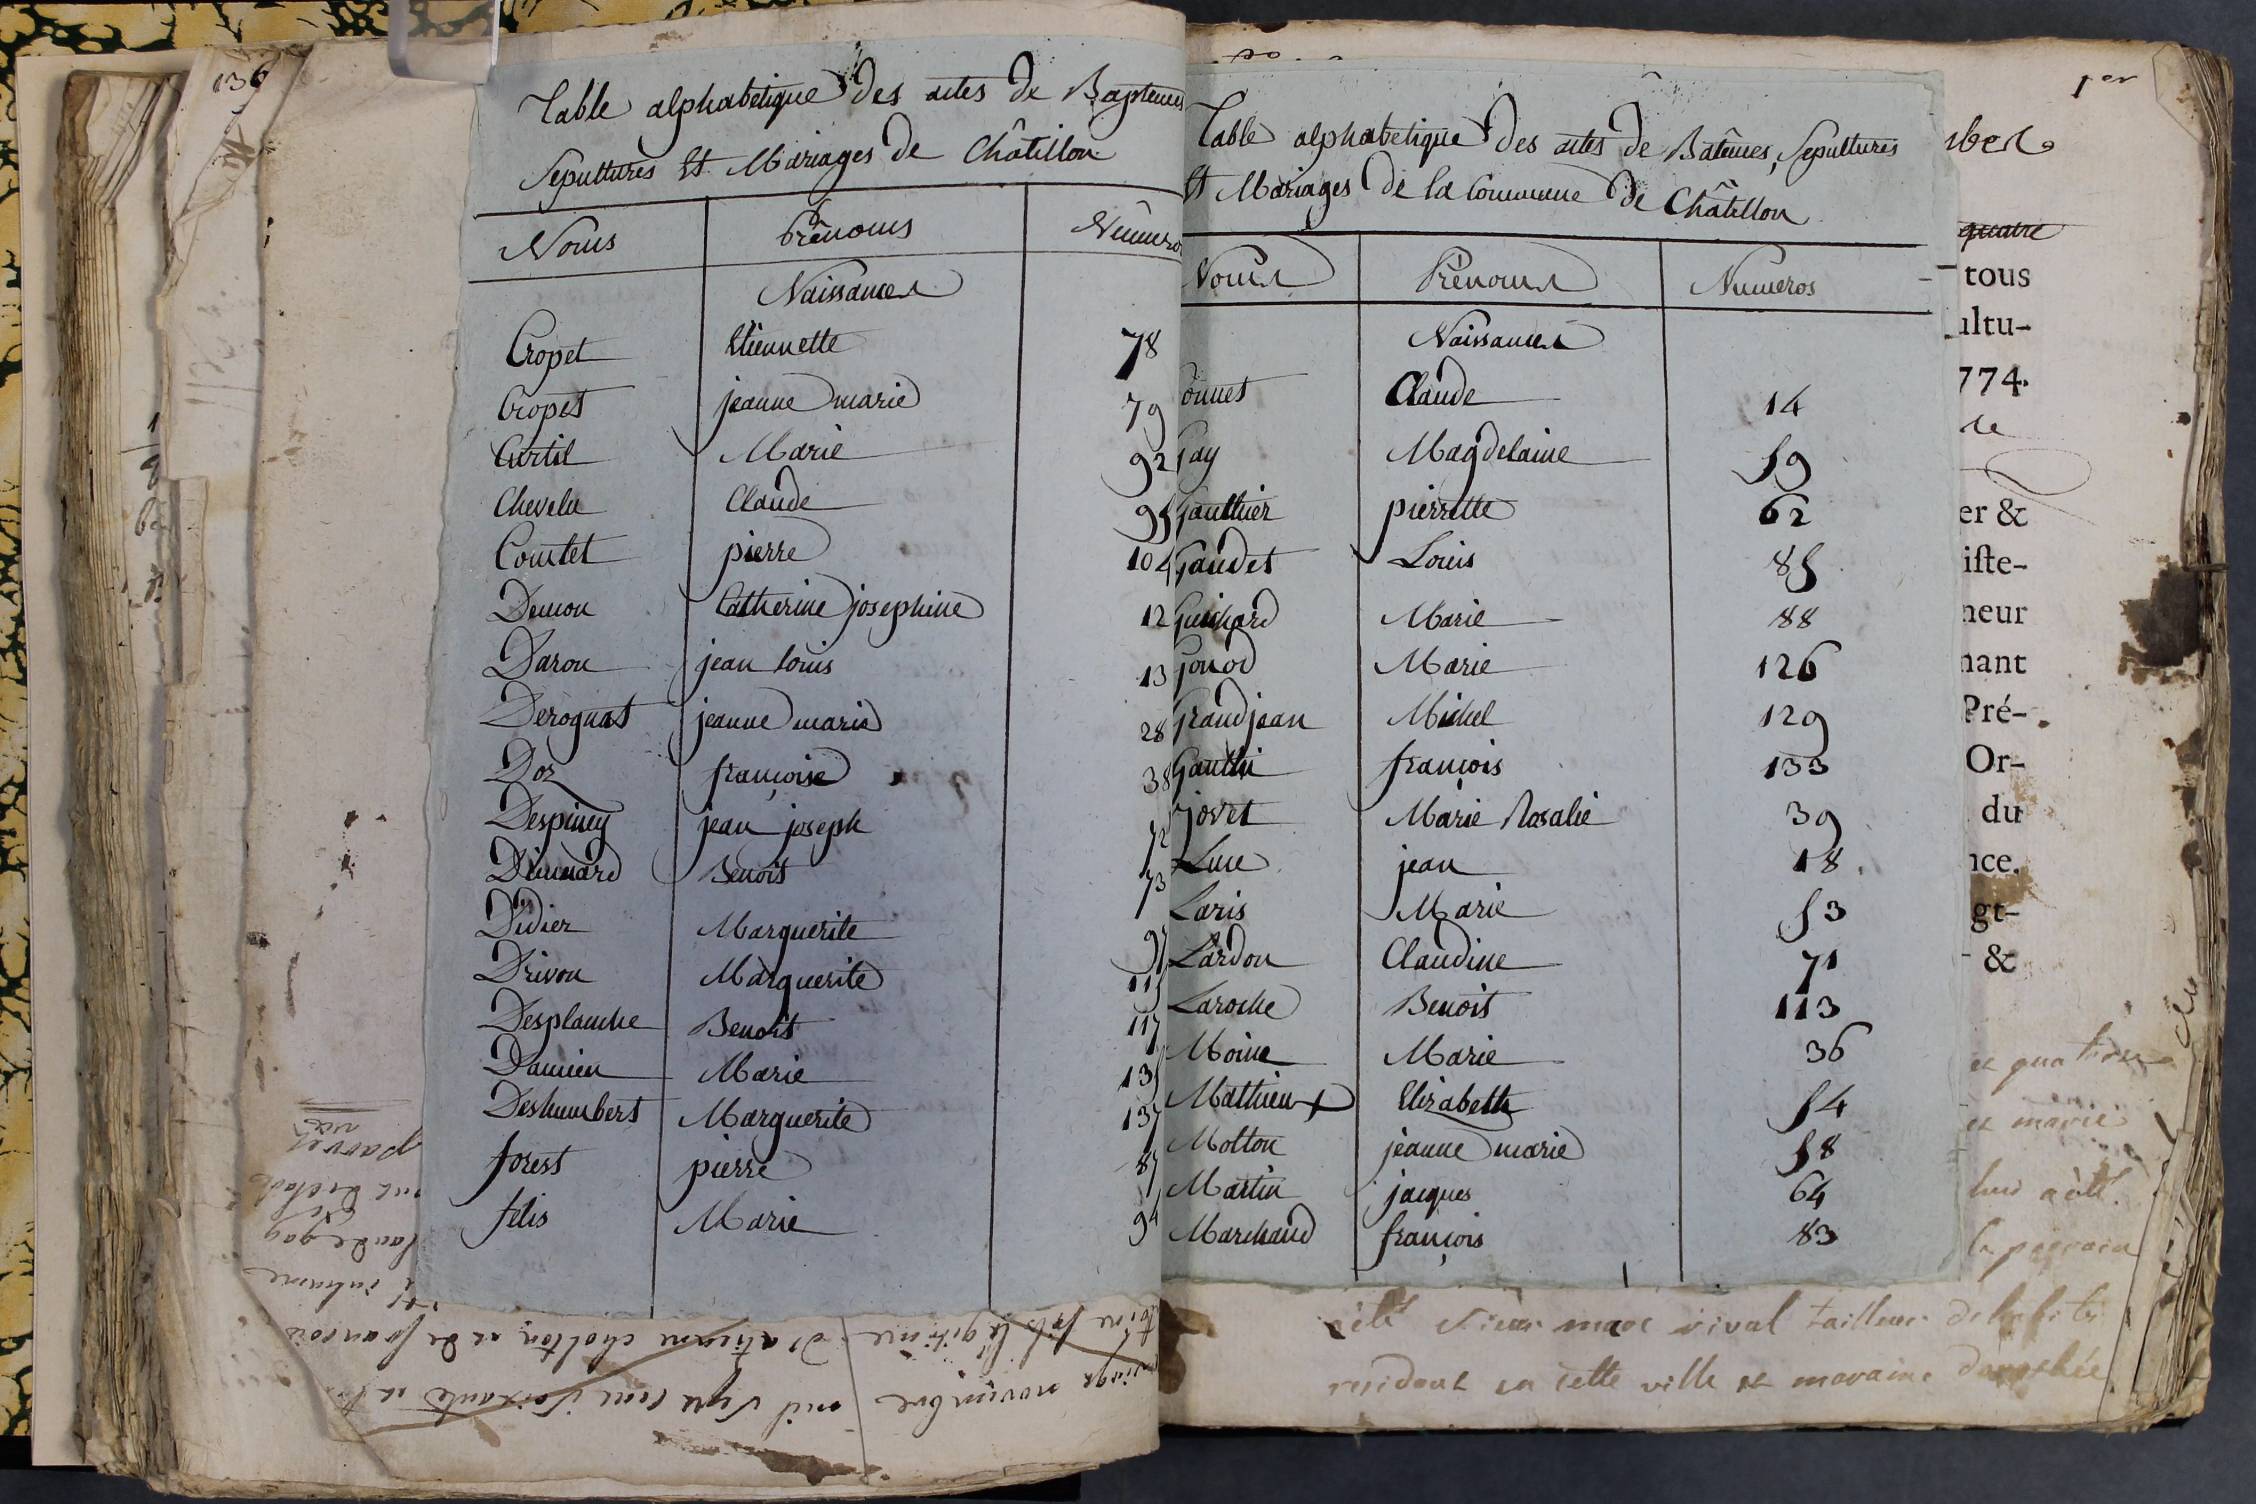 136
Table alphabetique des actes de Baptemes
Sepultures Et Mariages de Châtillon
Noms Prénoms Numeros
Naissances
Cropet Etiennette 78
Cropet jeanne marie 79
Curtil Marie 92
Chevelu Claude 95
Comtet pierre 104
Demon Catherine josephine 12
Darou jean Louis 13
Derognat jeanne marie 28
Doz françoise 38
Despiney jean joseph 72
Benoit 73
Didier Marguerite
Drivon Marguerite 115
Desplanche Benoit 117
Damien Marie 135
Deshumberts Marguerite 137
forest pierre 87
felis Marie 94
Table alphabetique des actes de Batêmes, Sepultures
Et Mariages de la Commune de Châtillon
Noms Prénoms Numeros
Naissances
onnet Claude 14
Gay Magdelaine 59
Gauthier pierrette 62
Gaudet Louis 85
Guichard Marie 88
Gonod Marie 126
Grandjean Michel 129
Gauthi françois 133
jovet Marie Rosalie 39
Luc jean 18
Laris Marie 53
Lardon Claudine 71
Laroche Benoit 113
Moine Marie 36
Mathieu Elizabeth 54
Molton jeanne marie 58
Martin jacques 64
Marchand françois 83
1er
quatre
tous
ultu-
774.
de
er &
iſte-
neur
nant
Pré-
Or-
du
nce.
gt-
&
et marie
le parrain
été Sieur marc vival tailleur de habits
residant en cette ville et maraine